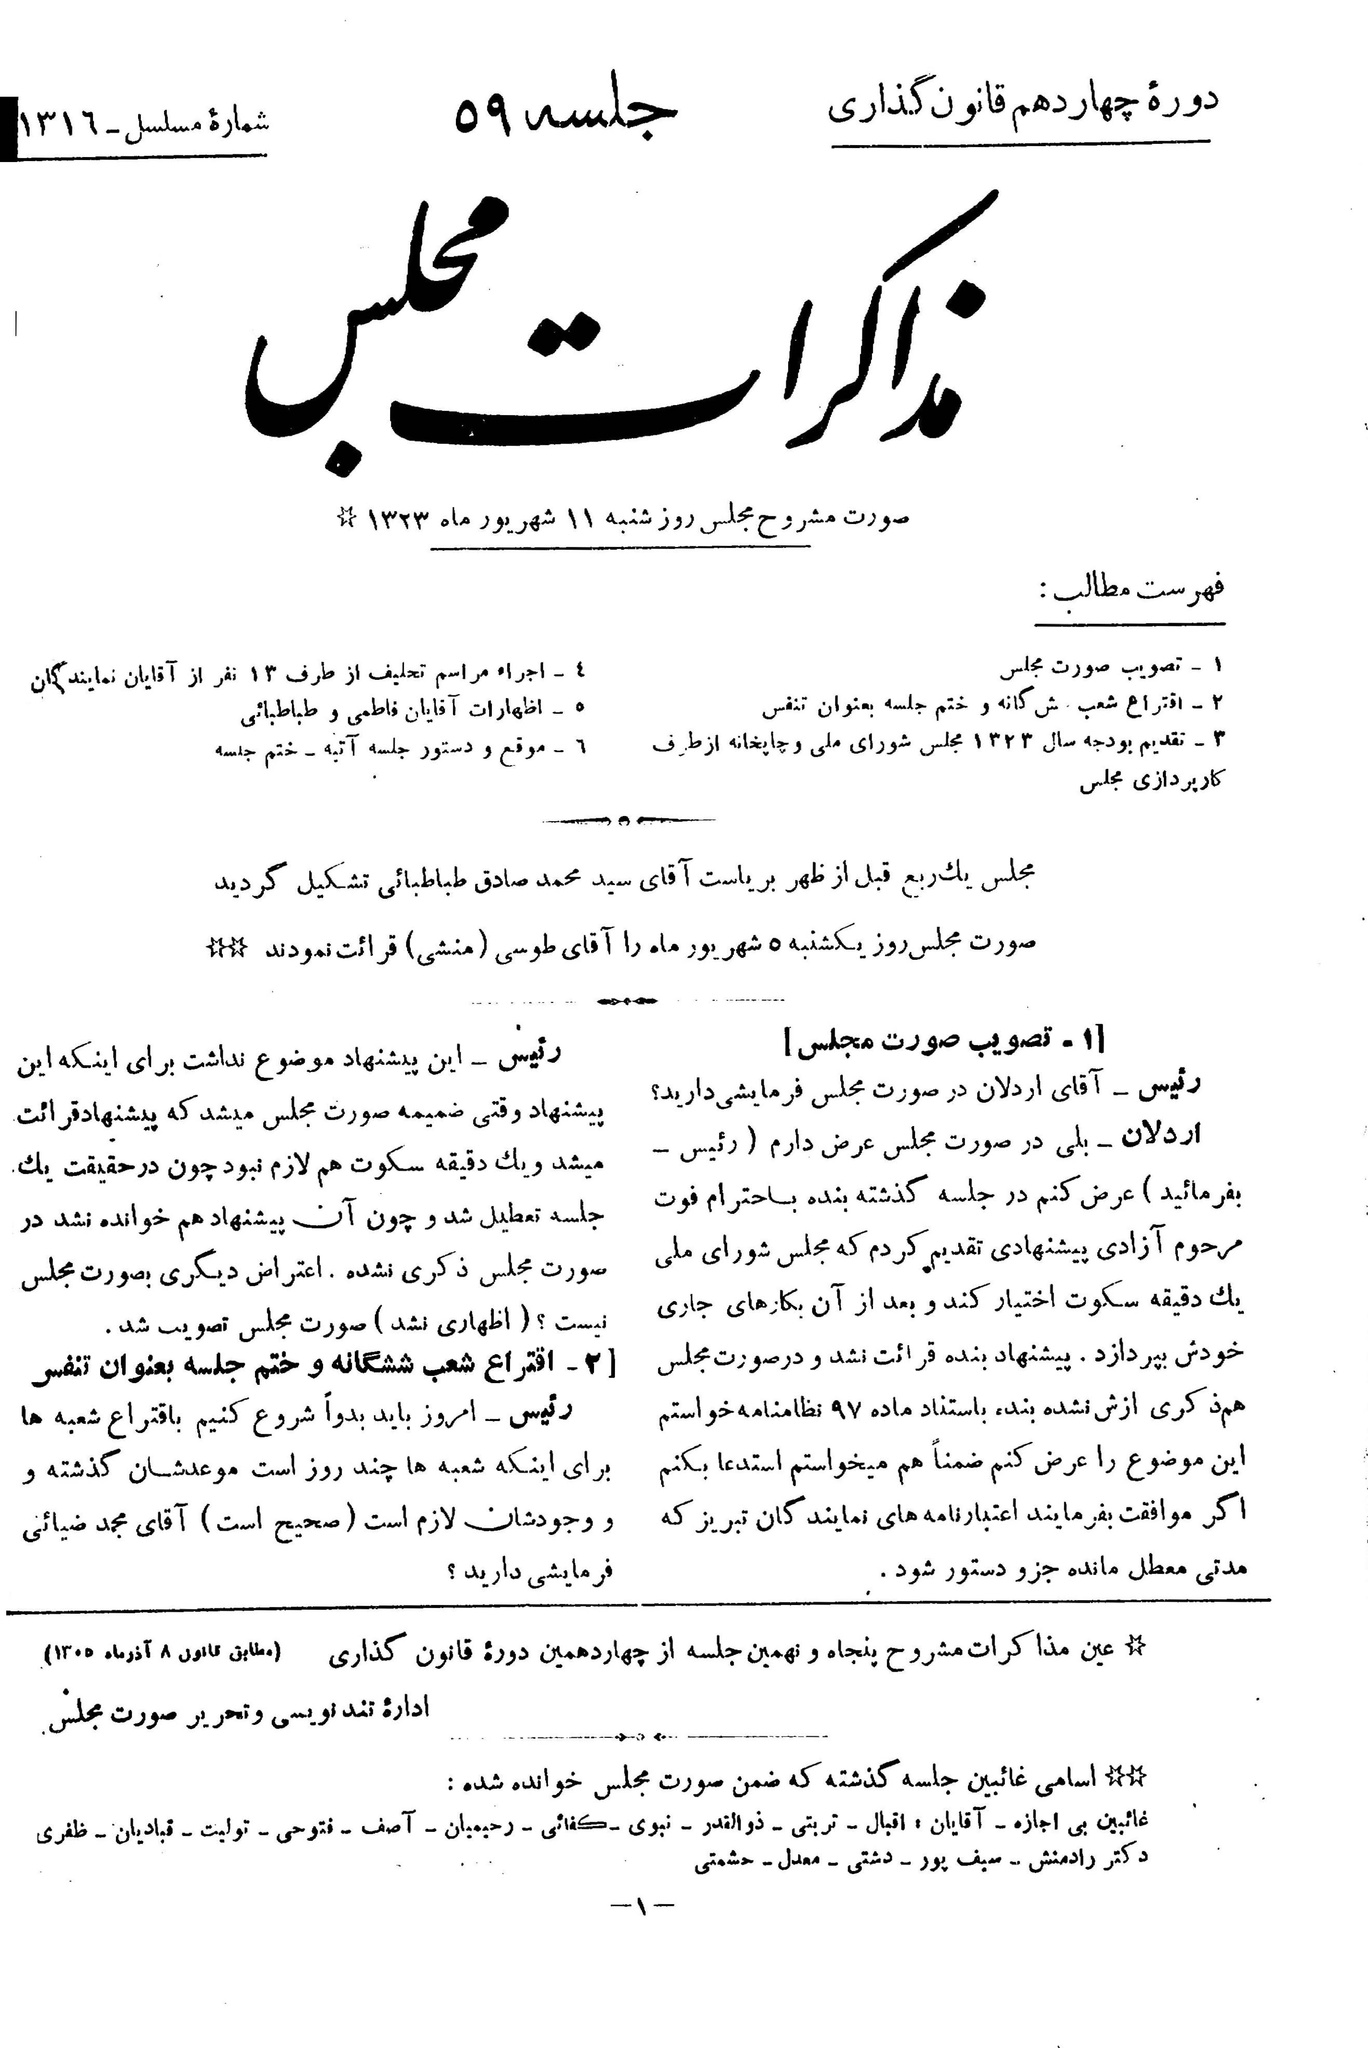 دورهٔ چهاردهم قانون گذاری
جلسه ۵۹
شمارهٔ مسلسل ـ ۱۳۱٦
مذاکرات مجلس
صورت مشروح مجلس روز شنبه ۱۱ شهریور ماه ۱۳۲۳ ☆
فهرست مطالب :
۱ ـ تصویب صورت مجلس
۲ ـ اقتراع شعب شش گانه و ختم جلسه بعنوان تنفس
۳ ـ تقدیم بودجه سال ۱۳۲۳ مجلس شورای ملی و چاپخانه از طرف
کارپردازی مجلس
٤ ـ اجراء مراسم تحلیف از طرف ۱۳ نفر از آقایان نمایندگان
۵ ـ اظهارات آقایان فاطمی و طباطبائی
٦ ـ موقع و دستور جلسه آتیه ـ ختم جلسه
مجلس یك ربع قبل از ظهر بریاست آقای سید محمد صادق طباطبائی تشکیل گردید
صورت مجلس روز یکشنبه ۵ شهریور ماه را آقای طوسی (منشی) قرائت نمودند ☆☆
[۱ ـ تصویب صورت مجلس]
رئیس ـ آقای اردلان در صورت مجلس فرمایشی دارید؟
اردلان ـ بلی در صورت مجلس عرض دارم ( رئیس ـ
بفرمائید ) عرض کنم در جلسه گذشته بنده باحترام فوت
مرحوم آزادی پیشنهادی تقدیم کردم که مجلس شورای ملی
یك دقیقه سکوت اختیار کند و بعد از آن بکارهای جاری
خودش بپردازد . پیشنهاد بنده قرائت نشد و درصورت مجلس
هم ذکری ازش نشده بنده باستناد ماده ۹۷ نظامنامه خواستم
این موضوع را عرض کنم ضمناً هم میخواستم استدعا بکنم
اگر موافقت بفرمایند اعتبارنامه های نمایندگان تبریز که
مدتی معطل مانده جزو دستور شود .
رئیس ـ این پیشنهاد موضوع نداشت برای اینکه این
پیشنهاد وقتی ضمیمه صورت مجلس میشد که پیشنهاد قرائت
میشد و یك دقیقه سکوت هم لازم نبود چون درحقیقت یك
جلسه تعطیل شد و چون آن پیشنهاد هم خوانده نشد در
صورت مجلس ذکری نشده . اعتراض دیگری بصورت مجلس
نیست ؟ ( اظهاری نشد ) صورت مجلس تصویب شد .
[۲ ـ اقتراع شعب ششگانه و ختم جلسه بعنوان تنفس
رئیس ـ امروز باید بدواً شروع کنیم باقتراع شعبه ها
برای اینکه شعبه ها چند روز است موعدشان گذشته و
و وجودشان لازم است (صحیح است) آقای مجد ضیائی
فرمایشی دارید ؟
☆ عین مذاکرات مشروح پنجاه و نهمین جلسه از چهاردهمین دورهٔ قانون گذاری (مطابق قانون ۸ آذرماه ۱۳۰۵)
ادارهٔ تندنویسی و تحریر صورت مجلس
☆☆ اسامی غائبین جلسه گذشته که ضمن صورت مجلس خوانده شده :
غائبین بی اجازه ـ آقایان : اقبال ـ تربتی ـ ذوالقدر ـ نبوی ـ کفائی ـ رحیمیان ـ آصف ـ فتوحی ـ تولیت ـ قبادیان ـ ظفری
دکتر رادمنش ـ سیف پور ـ دشتی ـ معدل ـ حشمتی
ـ۱ـ